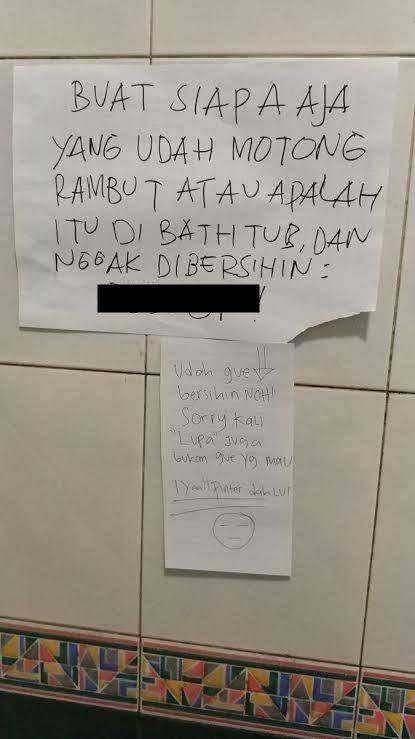 BUAT SIAPA AJA
YANG UDAH MOTONG
RAMBUT ATAU APALAH
ITU DI BATHTUB, DAN
NGGAK DIBERSIHIN :
!
Udah gue
bersihin NOH!
Sorry kali
"Lupa" juga
bukan gue yg mau
! Yaa!! Pinter dah LU!